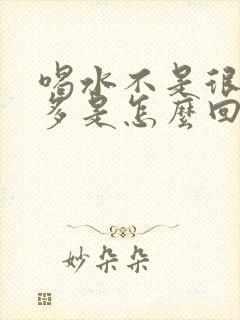 喝水不是很
多是怎麼回
妙朵朵